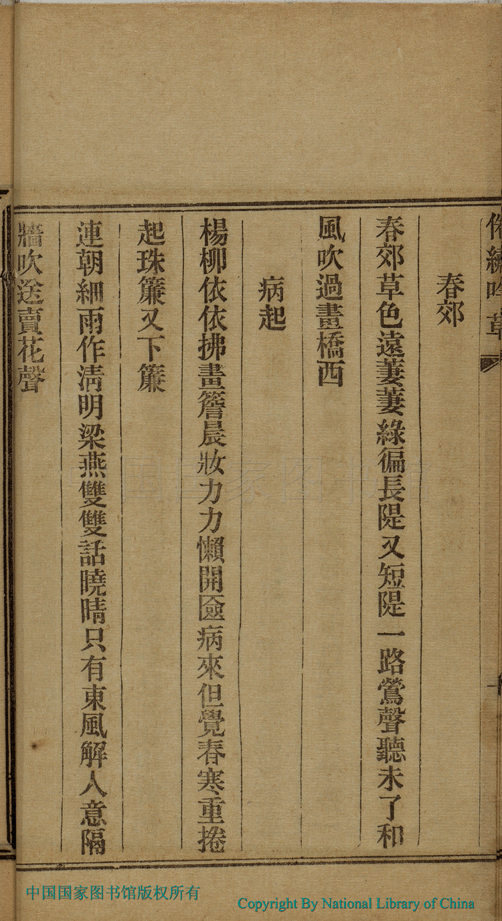 吟草
春郊
春郊草色遠萋萋綠徧長隄又短隄一路鶯聲聽未了和
風吹過畫橋西
病起
楊柳依依拂畫簷晨妝力力懶開匳病來但覺春寒重捲
起珠簾又下簾
連朝細雨作淸明梁燕雙雙話曉晴只有東風解人意隔
牆吹送賣花聲
中国国家图书馆版权所有
Copyright By National Library of China